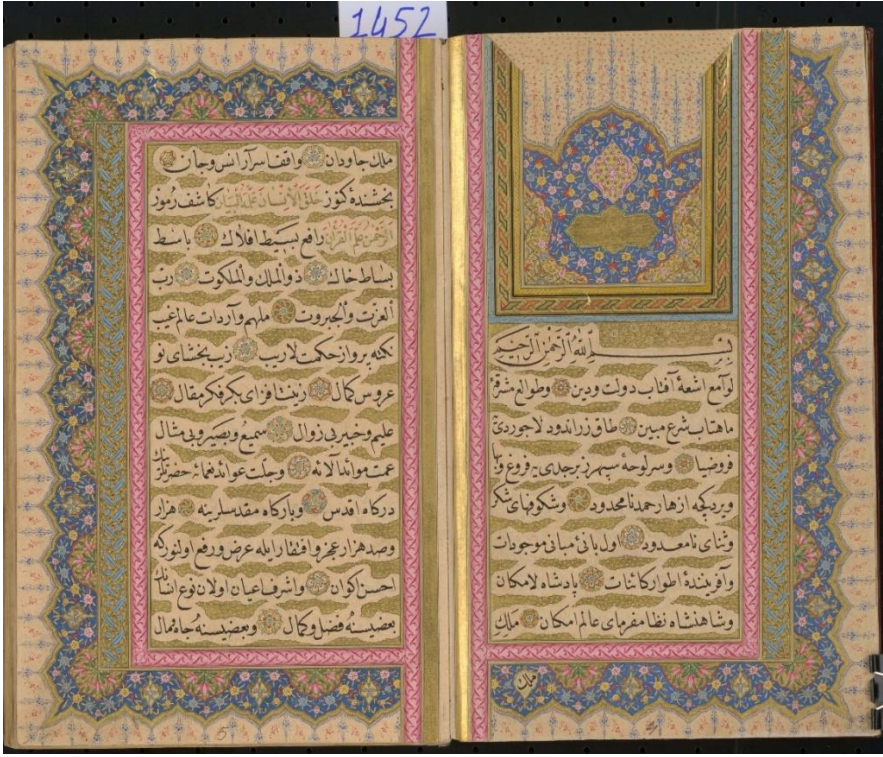 1452
بسم الله الرحمن الرحيم
لوامع اشعهٔ آفتاب دولت ودين وطوالع مشرقهٔ
ماهتاب شرع مبين طاق زراندود لاجوردئ
فروضيا وسرلوحهٔ سپهر زبرجدی پر فروغ وبها
وبردكجه ازهار حمد نامحدود وشكوفهای شكر
وثنای نامعدود اول بانئ مبانئ موجودات
وآفرينندهٔ اطوار كائنات پادشاه لامكان
وشاهنشاه نظامفرمای عالم امكان ملك
ملك
ملك جاودان واقف اسرار انس وجان
بخشندهٔ كنوز خَلَقَ الْإِنْسَانَ عَلَّمَهُ الْبَيَانَ كاشف رُموز
الرَّحْمٰنُ عَلَّمَ الْقُرْآنَ رافع بسيط افلاك باسط
بساط خاك ذوالملك والملكوت رب
العزت والجبروت ملهم واردات عالم غيب
نكته پرداز حكمت لاريب زيب بخشای نو
عروس كمال زينت افزای بكر فكر مقال
عليم وخبير بی زوال سميع وبصير وبی مثال
عمت موائد آلائه وجلت عوائد نعمائه حضرتلرينك
درگاه اقدس وبارگاه مقدسلرينه هزار
وصد هزار عجز وافتقار ايله عرض ورفع اولنوركه
احسن اكوان واشرف اعيان اولان نوع انسانك
بعضيسنه فضل وكمال وبعضيسنه جاه ومال
5